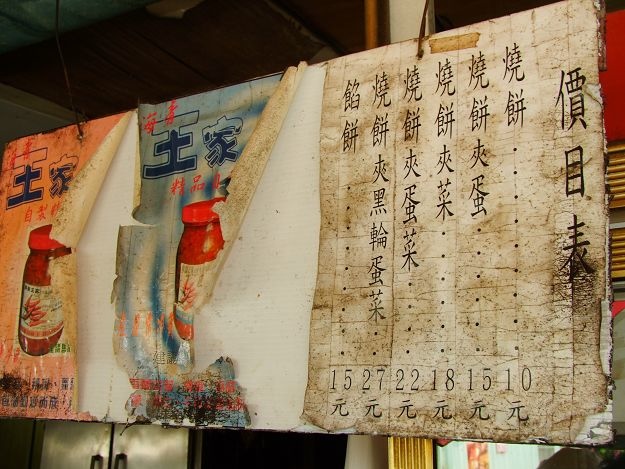 價目表
燒餅......10元
燒餅夾蛋......15元
燒餅夾菜......18元
燒餅夾蛋菜......22元
燒餅夾黑輪蛋菜...27元
餡餅..........15元
王家
精品
王家
自製